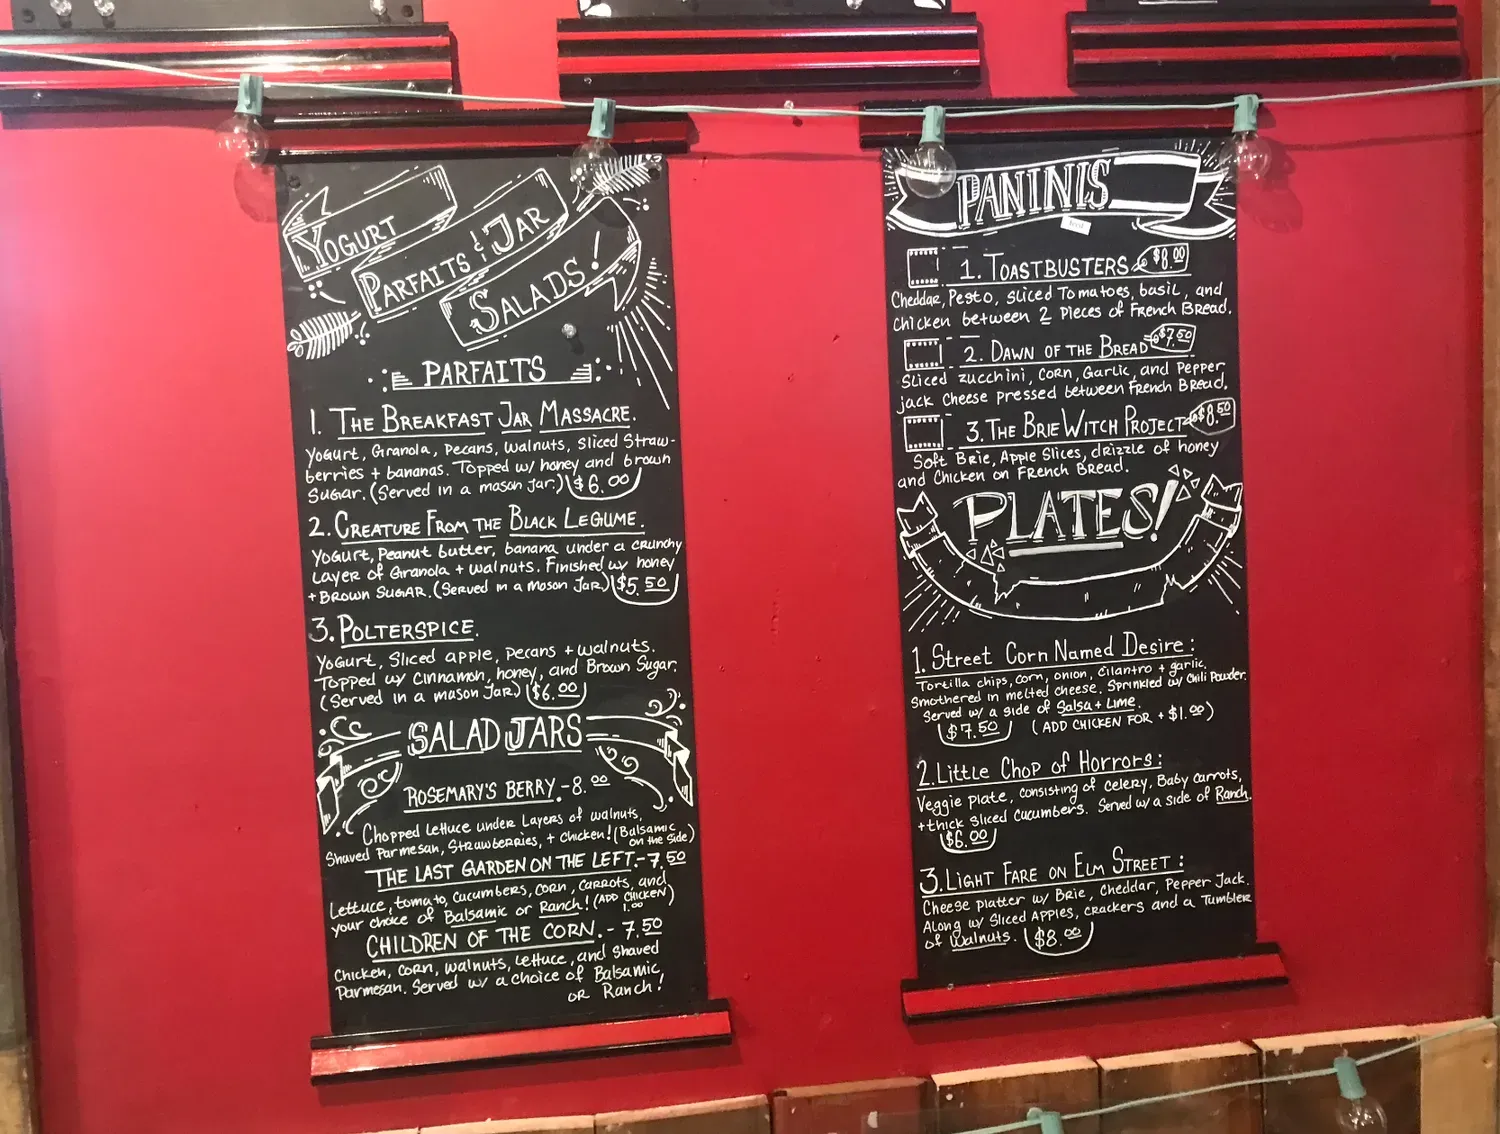 YOGURT
PARFAITS & JAR
SALADS!
PARFAITS
1. THE BREAKFAST JAR MASSACRE.
Yogurt, Granola, pecans, walnuts, sliced Straw-
berries + bananas. Topped w/ honey and brown
sugar. (Served in a mason jar.) $6.00
2. CREATURE FROM THE BLACK LEGUME.
Yogurt, Peanut butter, banana under a crunchy
Layer of Granola + walnuts. Finished w/ honey
+ BROWN SUGAR. (Served in a mason jar) $5.50
3. POLTERSPICE.
Yogurt, Sliced apple, pecans + walnuts.
Topped w/ cinnamon, honey, and Brown Sugar.
(Served in a mason jar) $6.00
SALAD JARS
ROSEMARY'S BERRY.-8.00
Chopped lettuce under Layers of walnuts,
Shaved Parmesan, Strawberries, + chicken! (Balsamic
on the side)
THE LAST GARDEN ON THE LEFT.-7.50
Lettuce, tomato, cucumbers, corn, carrots, and
your choice of Balsamic or Ranch! (ADD CHICKEN
1.00)
CHILDREN OF THE CORN.- 7.50
Chicken, corn, walnuts, lettuce, and shaved
Parmesan. Served w/ a choice of Balsamic
or Ranch!
PANINIS
1. TOASTBUSTERS $8.00
Cheddar, Pesto, sliced Tomatoes, basil, and
chicken between 2 pieces of French Bread.
2. DAWN OF THE BREAD $7.50
Sliced zucchini, corn, Garlic, and Pepper
jack Cheese pressed between French Bread.
3. THE BRIE WITCH PROJECT $8.50
Soft Brie, Apple Slices, drizzle of honey
and Chicken on French Bread.
PLATES!
1. Street Corn Named Desire:
Tortilla chips, corn, onion, cilantro + garlic.
Smothered in melted cheese. Sprinkled w/ Chili Powder.
Served w/ a side of Salsa + Lime.
$7.50 (ADD CHICKEN FOR + $1.00)
2. Little Chop of Horrors:
Veggie plate, consisting of celery, Baby carrots,
+ thick sliced cucumbers. Served w/ a side of Ranch.
$6.00
3. LIGHT FARE ON ELM STREET:
Cheese platter w/ Brie, Cheddar, Pepper Jack.
Along w/ Sliced Apples, crackers and a Tumbler
of walnuts. $8.00